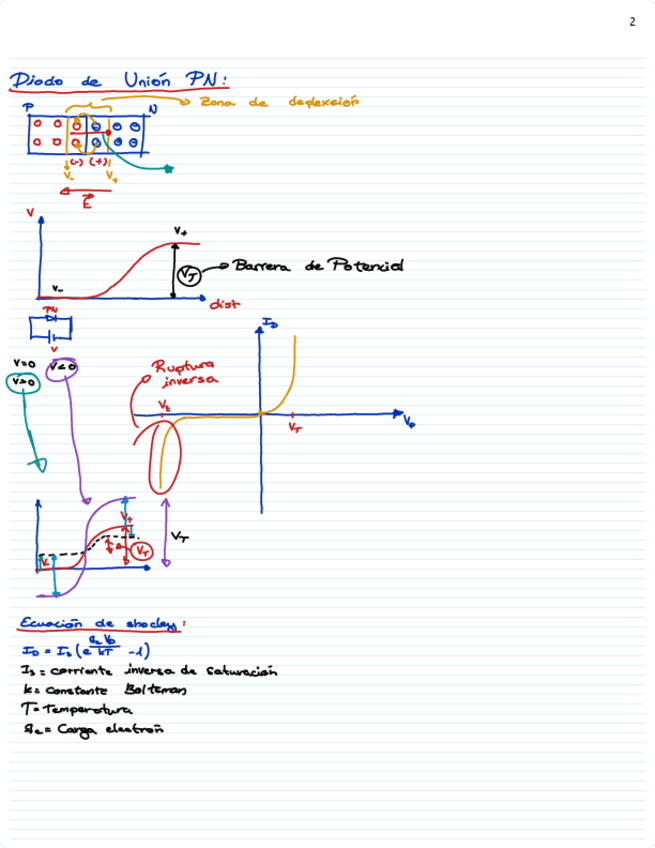 2
Diodo de Unión PN:
Zona de deplexción
P N
(-) (+)
V- V+
E
V
V+
VT Barrera de Potencial
V-
dist
PN
V
ID
V=0 V<0
V>0
Ruptura
inversa
Vz
VT
VD
V+
VT
VT
Ecuación de shocley:
ID = Is (e qe VD / kT -1)
Is = corriente inversa de saturación
k = Constante Boltzman
T = Temperatura
qe = Carga electrón